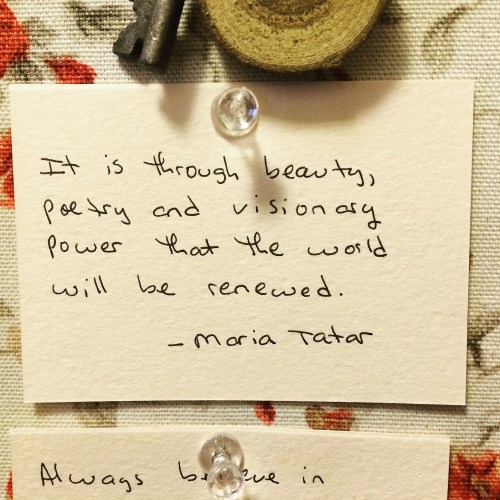 It is through beauty,
poetry and visionary
power that the world
will be renewed.
- Maria Tatar
Always believe in